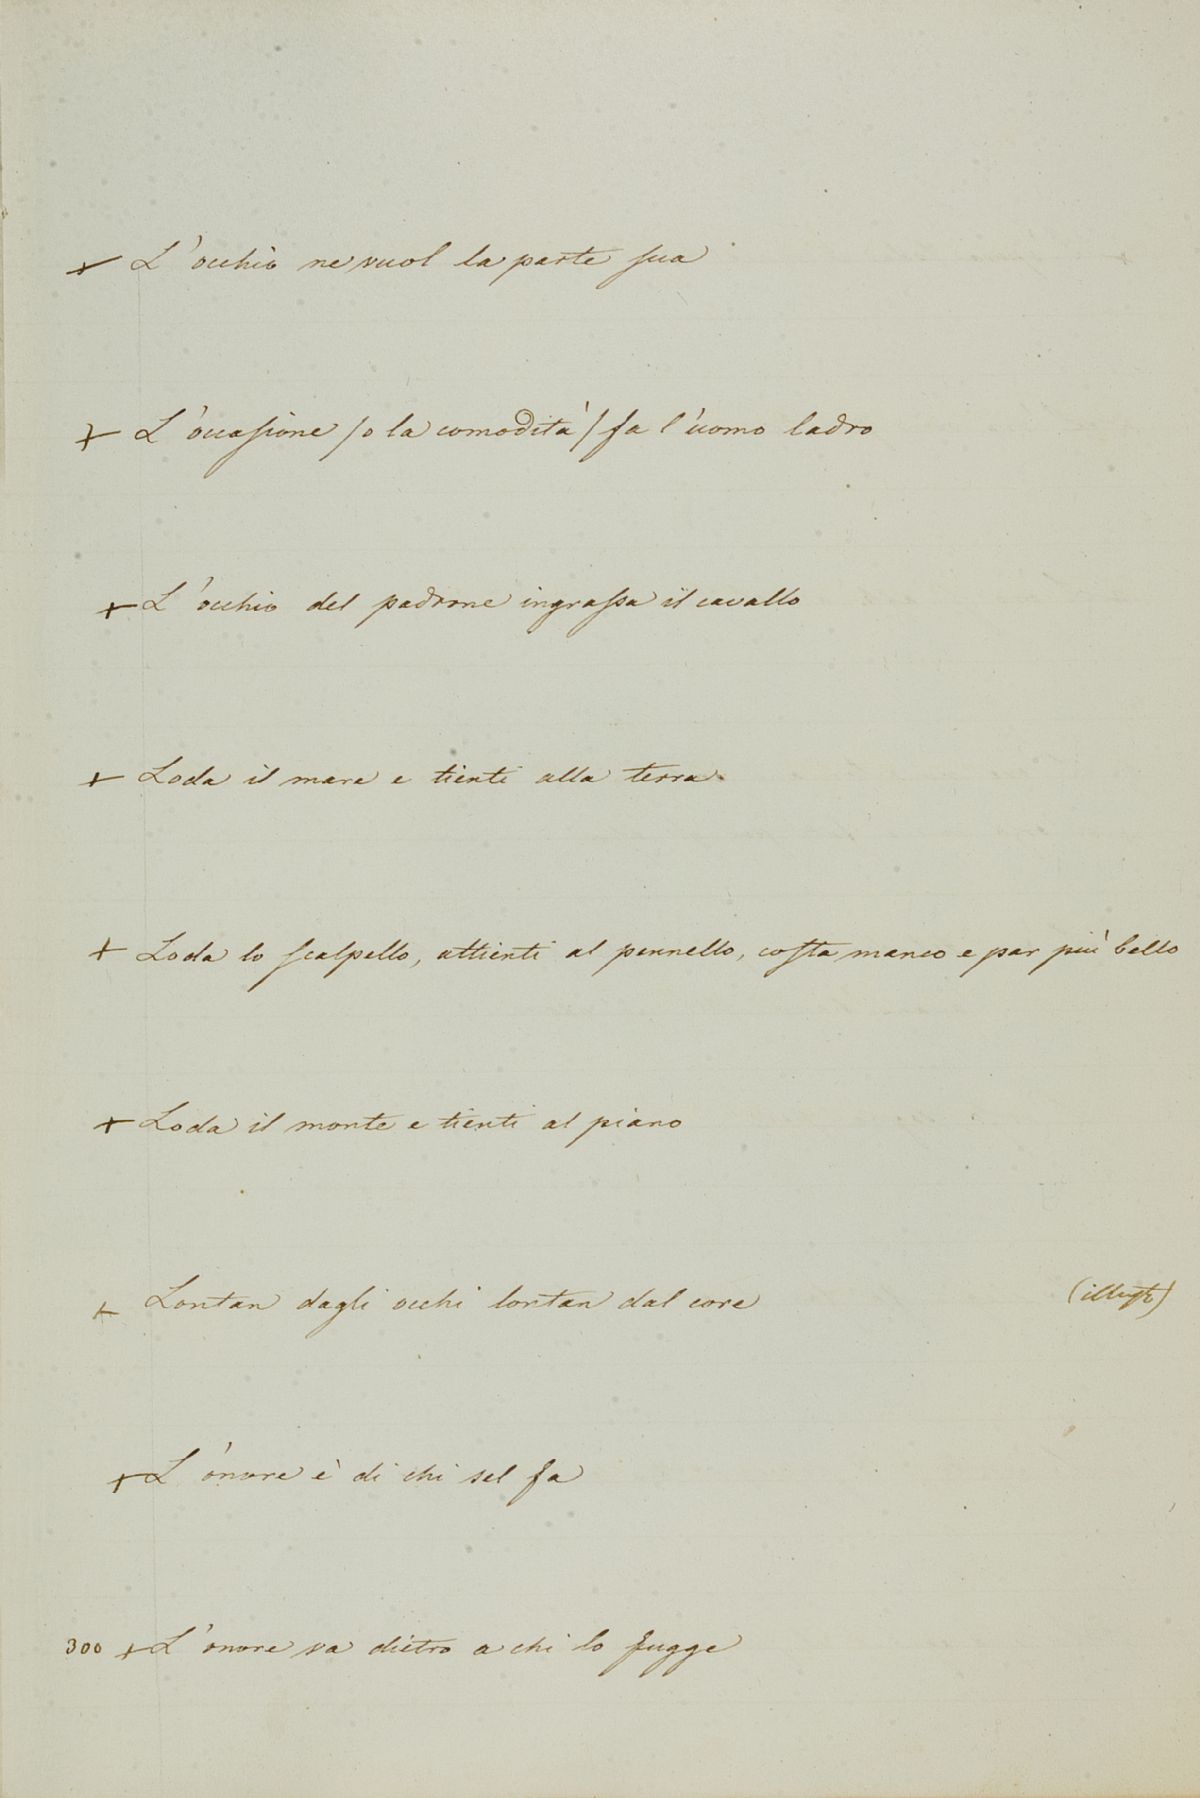 + L'occhio ne vuol la parte sua
+ L'occasione /o la comodità/ fa l'uomo ladro
+ L'occhio del padrone ingrassa il cavallo
+ Loda il mare e tienti alla terra
+ Loda lo scalpello, attienti al pennello, costa manco e par più bello
+ Loda il monte e tienti al piano
+ Lontan dagli occhi lontan dal core
+ L'onore è di chi sel fa
300 + L'onore va dietro a chi lo fugge